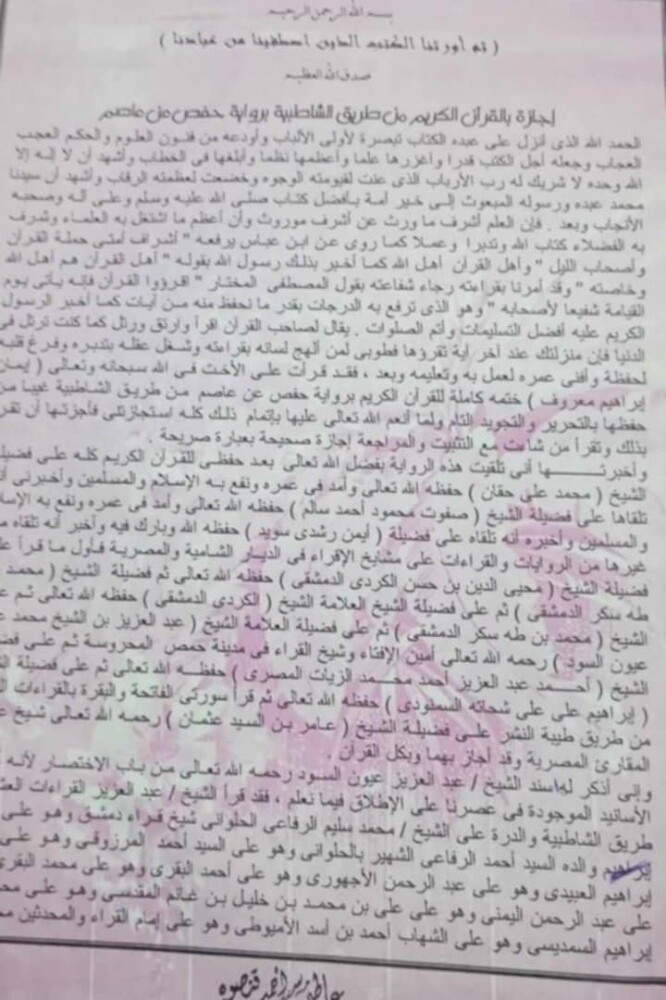 بسم الله الرحمن الرحيم
( ثم أورثنا الكتب الذين اصطفينا من عبادنا )
صدق الله العظيم
إجازة بالقرآن الكريم من طريق الشاطبية برواية حفص عن عاصم
الحمد الله الذى أنزل على عبده الكتاب تبصرة لأولى الألباب وأودعه من فنون العلوم والحكم العجب
العجاب وجعله أجل الكتب قدرا وأغزرها علما وأعظمها نظما وأبلغها فى الخطاب وأشهد أن لا إله إلا
الله وحده لا شريك له رب الأرباب الذى عنت لقيومته الوجوه وخضعت لعظمته الرقاب وأشهد أن سيدنا
محمد عبده ورسوله المبعوث إلى خير أمة بأفضل كتاب صلى الله عليه وسلم وعلى آله وصحبه
الأنجاب وبعد . فإن العلم أشرف ما ورث عن أشرف موروث وأن أعظم ما اشتغل به العلماء وشرف
به الفضلاء كتاب الله وتدبرا وعملا كما روى عن ابن عباس يرفعه " أشراف أمتى حملة القرآن
وأصحاب الليل " وأهل القرآن أهل الله كما أخبر بذلك رسول الله بقوله " أهل القرآن هم أهل الله
وخاصته " وقد أمرنا بقراءته رجاء شفاعته بقول المصطفى المختار " اقرؤوا القرآن فإنه يأتى يوم
القيامة شفيعا لأصحابه " وهو الذى ترفع به الدرجات بقدر ما نحفظ منه من آيات كما أخبر الرسول
الكريم عليه أفضل التسليمات وأتم الصلوات . يقال لصاحب القرآن اقرأ وارتق ورتل كما كنت ترتل فى
الدنيا فإن منزلتك عند آخر آية تقرؤها فطوبى لمن ألهج لسانه بقراءته وشغل عقله بتدبره وفرغ قلبه
لحفظة وأفنى عمره لعمل به وتعليمه وبعد ، فقد قرأت على الأخت فى الله سبحانه وتعالى ( إيمان
إبراهيم معروف ) ختمه كاملة للقرآن الكريم برواية حفص عن عاصم من طريق الشاطبية غيبا من
حفظها بالتحرير والتجويد التام ولما أنعم الله تعالى عليها بإتمام ذلك كله استجازتنى فأجزتها أن تقرأ
بذلك وتقرأ من شاءت مع التثبيت والمراجعة إجازة صحيحة بعبارة صريحة .
وأخبرتها أنى تلقيت هذه الرواية بفضل الله تعالى بعد حفظى للقرآن الكريم كله على فضيلة
الشيخ ( محمد على حقان ) حفظه الله تعالى وأمد فى عمره ونفع به الإسلام والمسلمين وأخبرنى أنه
تلقاها على فضيلة الشيخ ( صفوت محمود أحمد سالم ) حفظه الله تعالى وأمد فى عمره ونفع به الإسلام
والمسلمين وأخبره أنه تلقاه على فضيلة ( أيمن رشدى سويد ) حفظه الله وبارك فيه وأخبر أنه تلقاه
غيرها من الروايات والقراءات على مشايخ الإقراء فى الديار الشامية والمصرية فأول ما قرأ على
فضيلة الشيخ ( محيى الدين بن حسن الكردى الدمشقى ) حفظه الله تعالى ثم فضيلة الشيخ ( محمد
طه سكر الدمشقى ) ثم على فضيلة الشيخ العلامة الشيخ ( الكردى الدمشقى ) حفظه الله تعالى ثم
الشيخ ( محمد بن طه سكر الدمشقى ) ثم على فضيلة العلامة الشيخ ( عبد العزيز بن الشيخ محمد
عيون السود ) رحمه الله تعالى أمين الإفتاء وشيخ القراء فى مدينة حمص المحروسة ثم على
الشيخ ( أحمد عبد العزيز أحمد محمد الزيات المصرى ) حفظه الله تعالى ثم على فضيلة
( إبراهيم على على شحاته السمنودى ) حفظه الله تعالى ثم قرأ سورتى الفاتحة والبقرة بالقراءات
من طريق طيبة النشر على فضيلة الشيخ ( عامر بن السيد عثمان ) رحمه الله تعالى شيخ
المقارئ المصرية وقد أجاز بهما وبكل القرآن .
وإنى أذكر له سند الشيخ / عبد العزيز عيون السود رحمه الله تعالى من باب الاختصار لأنه
الأسانيد الموجودة فى عصرنا على الإطلاق فيما نعلم ، فقد قرأ الشيخ / عبد العزيز القراءات
طريق الشاطبية والدرة على الشيخ / محمد سليم الرفاعى الحلوانى شيخ قراء دمشق وهو على
والده السيد أحمد الرفاعى الشهير بالحلوانى وهو على السيد أحمد المرزوقى وهو على
إبراهيم العبيدى وهو على عبد الرحمن الأجهورى وهو على أحمد البقرى وهو على محمد البقرى
على عبد الرحمن اليمنى وهو على على بن محمد بن خليل بن غانم المقدسى وهو على
إبراهيم السمديسى وهو على الشهاب أحمد بن أسد الأميوطى وهو على إمام القراء والمحدثين